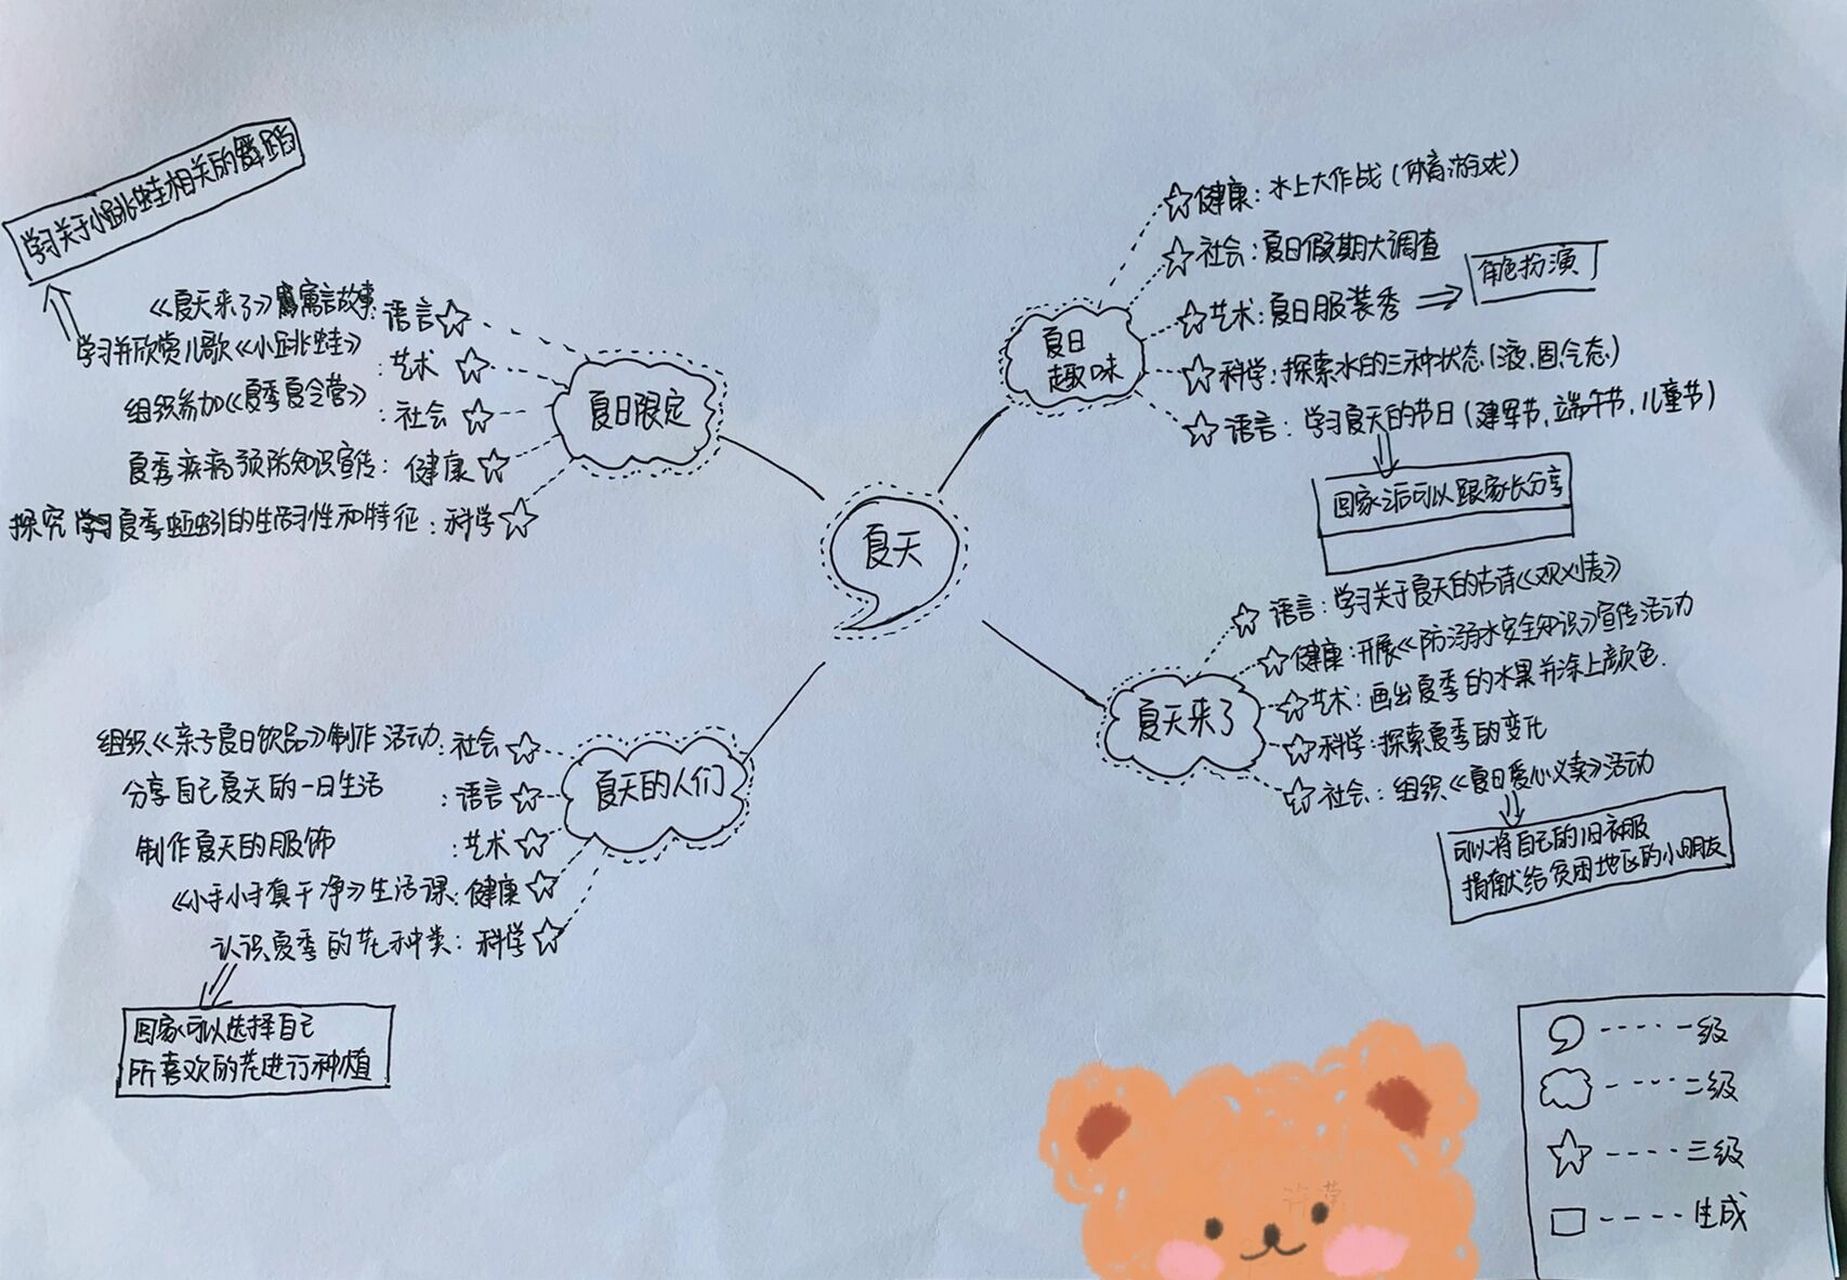 学习关于小跳蛙相关的舞蹈
《夏天来了》寓言故事:语言
学习并欣赏儿歌《小跳蛙》:艺术
组织参加《夏季夏令营》:社会
夏季疾病预防知识宣传:健康
探究夏季蚯蚓的生活习性和特征:科学
夏日限定
夏天
夏日
趣味
健康:水上大作战(体育游戏)
社会:夏日假期大调查
艺术:夏日服装秀
角色扮演
科学:探索水的三种状态(液.固.气态)
语言:学习夏天的节日(建军节,端午节,儿童节)
回家之后可以跟家长分享
夏天来了
语言:学习关于夏天的古诗《观刈麦》
健康:开展《防溺水安全知识》宣传活动
艺术:画出夏季的水果并涂上颜色.
科学:探索夏季的变化
社会:组织《夏日爱心义卖》活动
可以将自己的旧衣服
捐献给贫困地区的小朋友
组织《亲子夏日饮品》制作活动:社会
分享自己夏天的一日生活:语言
制作夏天的服饰:艺术
《小手小手真干净》生活课:健康
认识夏季的花种类:科学
夏天的人们
回家可以选择自己
所喜欢的花进行种植
一级
二级
三级
生成